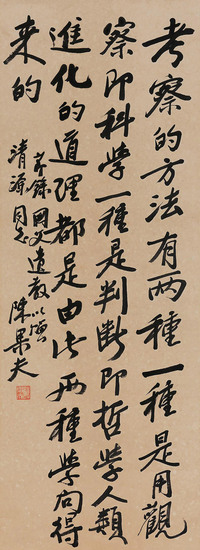 考察的方法有两種一種是用觀
察即科学一種是判断即哲学人類
進化的道理都是由此两種学问得
来的
清源同志
萃錄國父遺教以
陳果夫